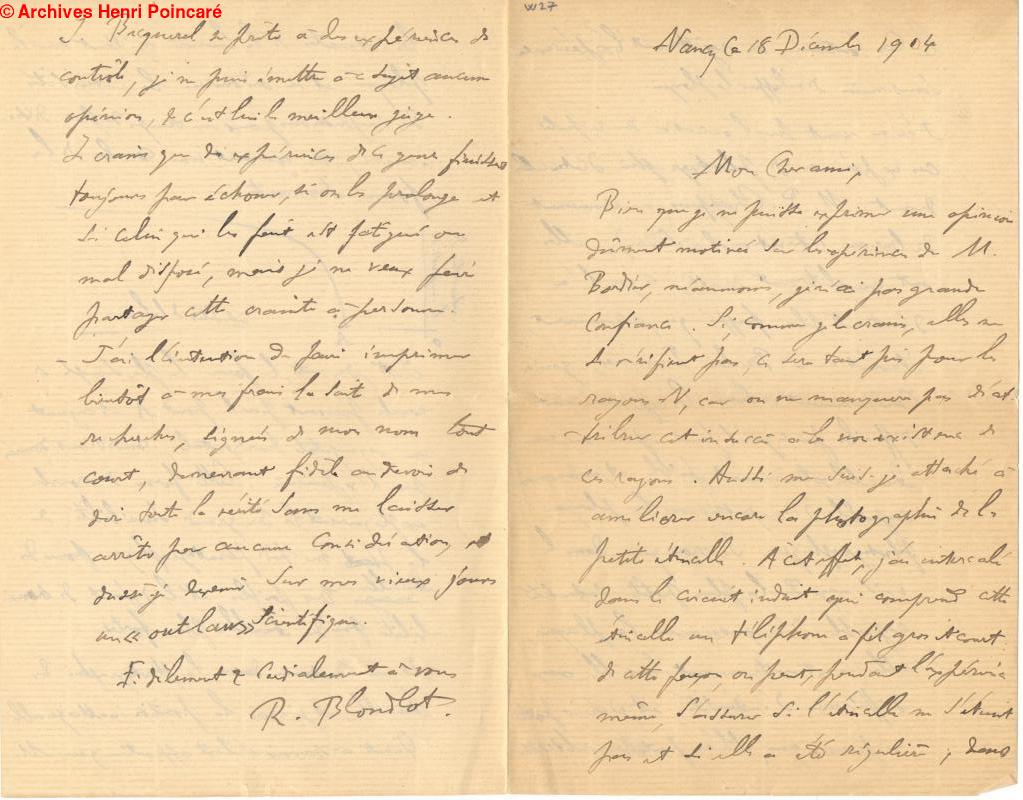 © Archives Henri Poincaré
W27
Nancy le 18 Décembre 1904
Mon Cher ami,
Bien que je ne puisse exprimer une opinion
dûment motivée sur les expériences de M.
Bordier, néanmoins, je n'ai pas grande
confiance. Si, comme je le crains, elles ne
se vérifient pas, ce sera tant pis pour les
rayons N, car on ne manquera pas d'at-
tribuer cet insuccès à la non existence de
ces rayons. Aussi me suis-je attaché à
améliorer encore la photographie de la
petite étincelle. A cet effet, j'ai intercalé
dans le circuit induit qui comprend cette
étincelle un téléphone à fil gros et court
de cette façon, on peut, pendant l'expérience
même, s'assurer si l'étincelle ne s'éteint
pas et si elle a été régulière ; dans
Becquerel se prête à des expériences de
contrôle, je ne puis émettre à ce sujet aucune
opinion, & c'est lui le meilleur juge.
Je crains que des expériences de ce genre finissent
toujours par échouer, si on les prolonge et
si celui qui les fait est fatigué ou
mal disposé, mais je ne veux faire
partager cette crainte à personne.
– J'ai l'intention de faire imprimer
bientôt à mes frais la suite de mes
recherches, signées de mon nom tout
court, demeurant fidèle au devoir de
dire toute la vérité sans me laisser
arrêter par aucune considération,
dussé-je devenir sur mes vieux jours
un « outlaw » scientifique.
Fidèlement & Cordialement à vous
R. Blondlot.